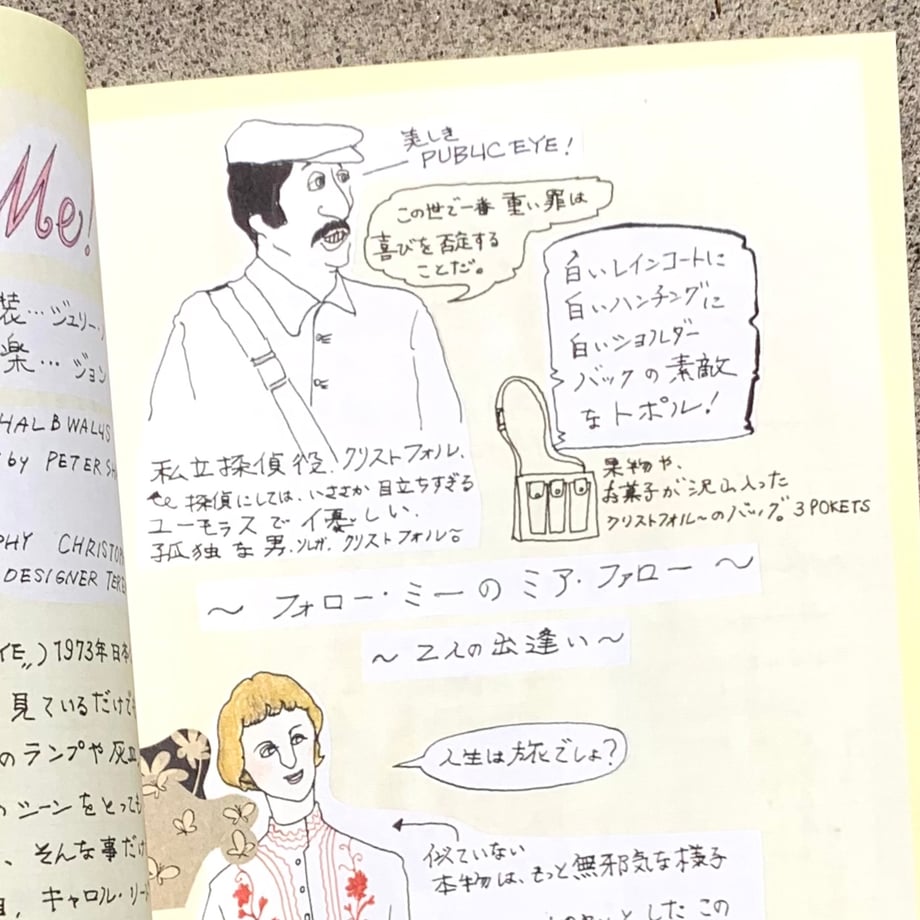 Me!
装…ジュリー・
楽…ジョン
HAL B WALLIS
by PETER SH
PHY CHRISTO
DESIGNER TER
YE〃) 1973年日本
見ているだけで
のランプや灰皿
シーンをとっても
、そんな事だけ
キャロル・リー
美しき
PUBLIC EYE!
この世で一番 重い罪は
喜びを否定する
ことだ。
白いレインコートに
白いハンチングに
白いショルダー
バックの素敵
なトポル!
私立探偵役、クリストフォル、
探偵にしては、いささか目立ちすぎる
ユーモラスで優しい、
孤独な男、ソレガ、クリストフォル〜
果物や、
お菓子が沢山入った
クリストフォル〜のバッグ。3POKETS
〜 フォロー・ミーの ミア・ファロー 〜
〜 2人の出逢い 〜
人生は旅でしょ?
似ていない
本物は、もっと無邪気な様子
とした この